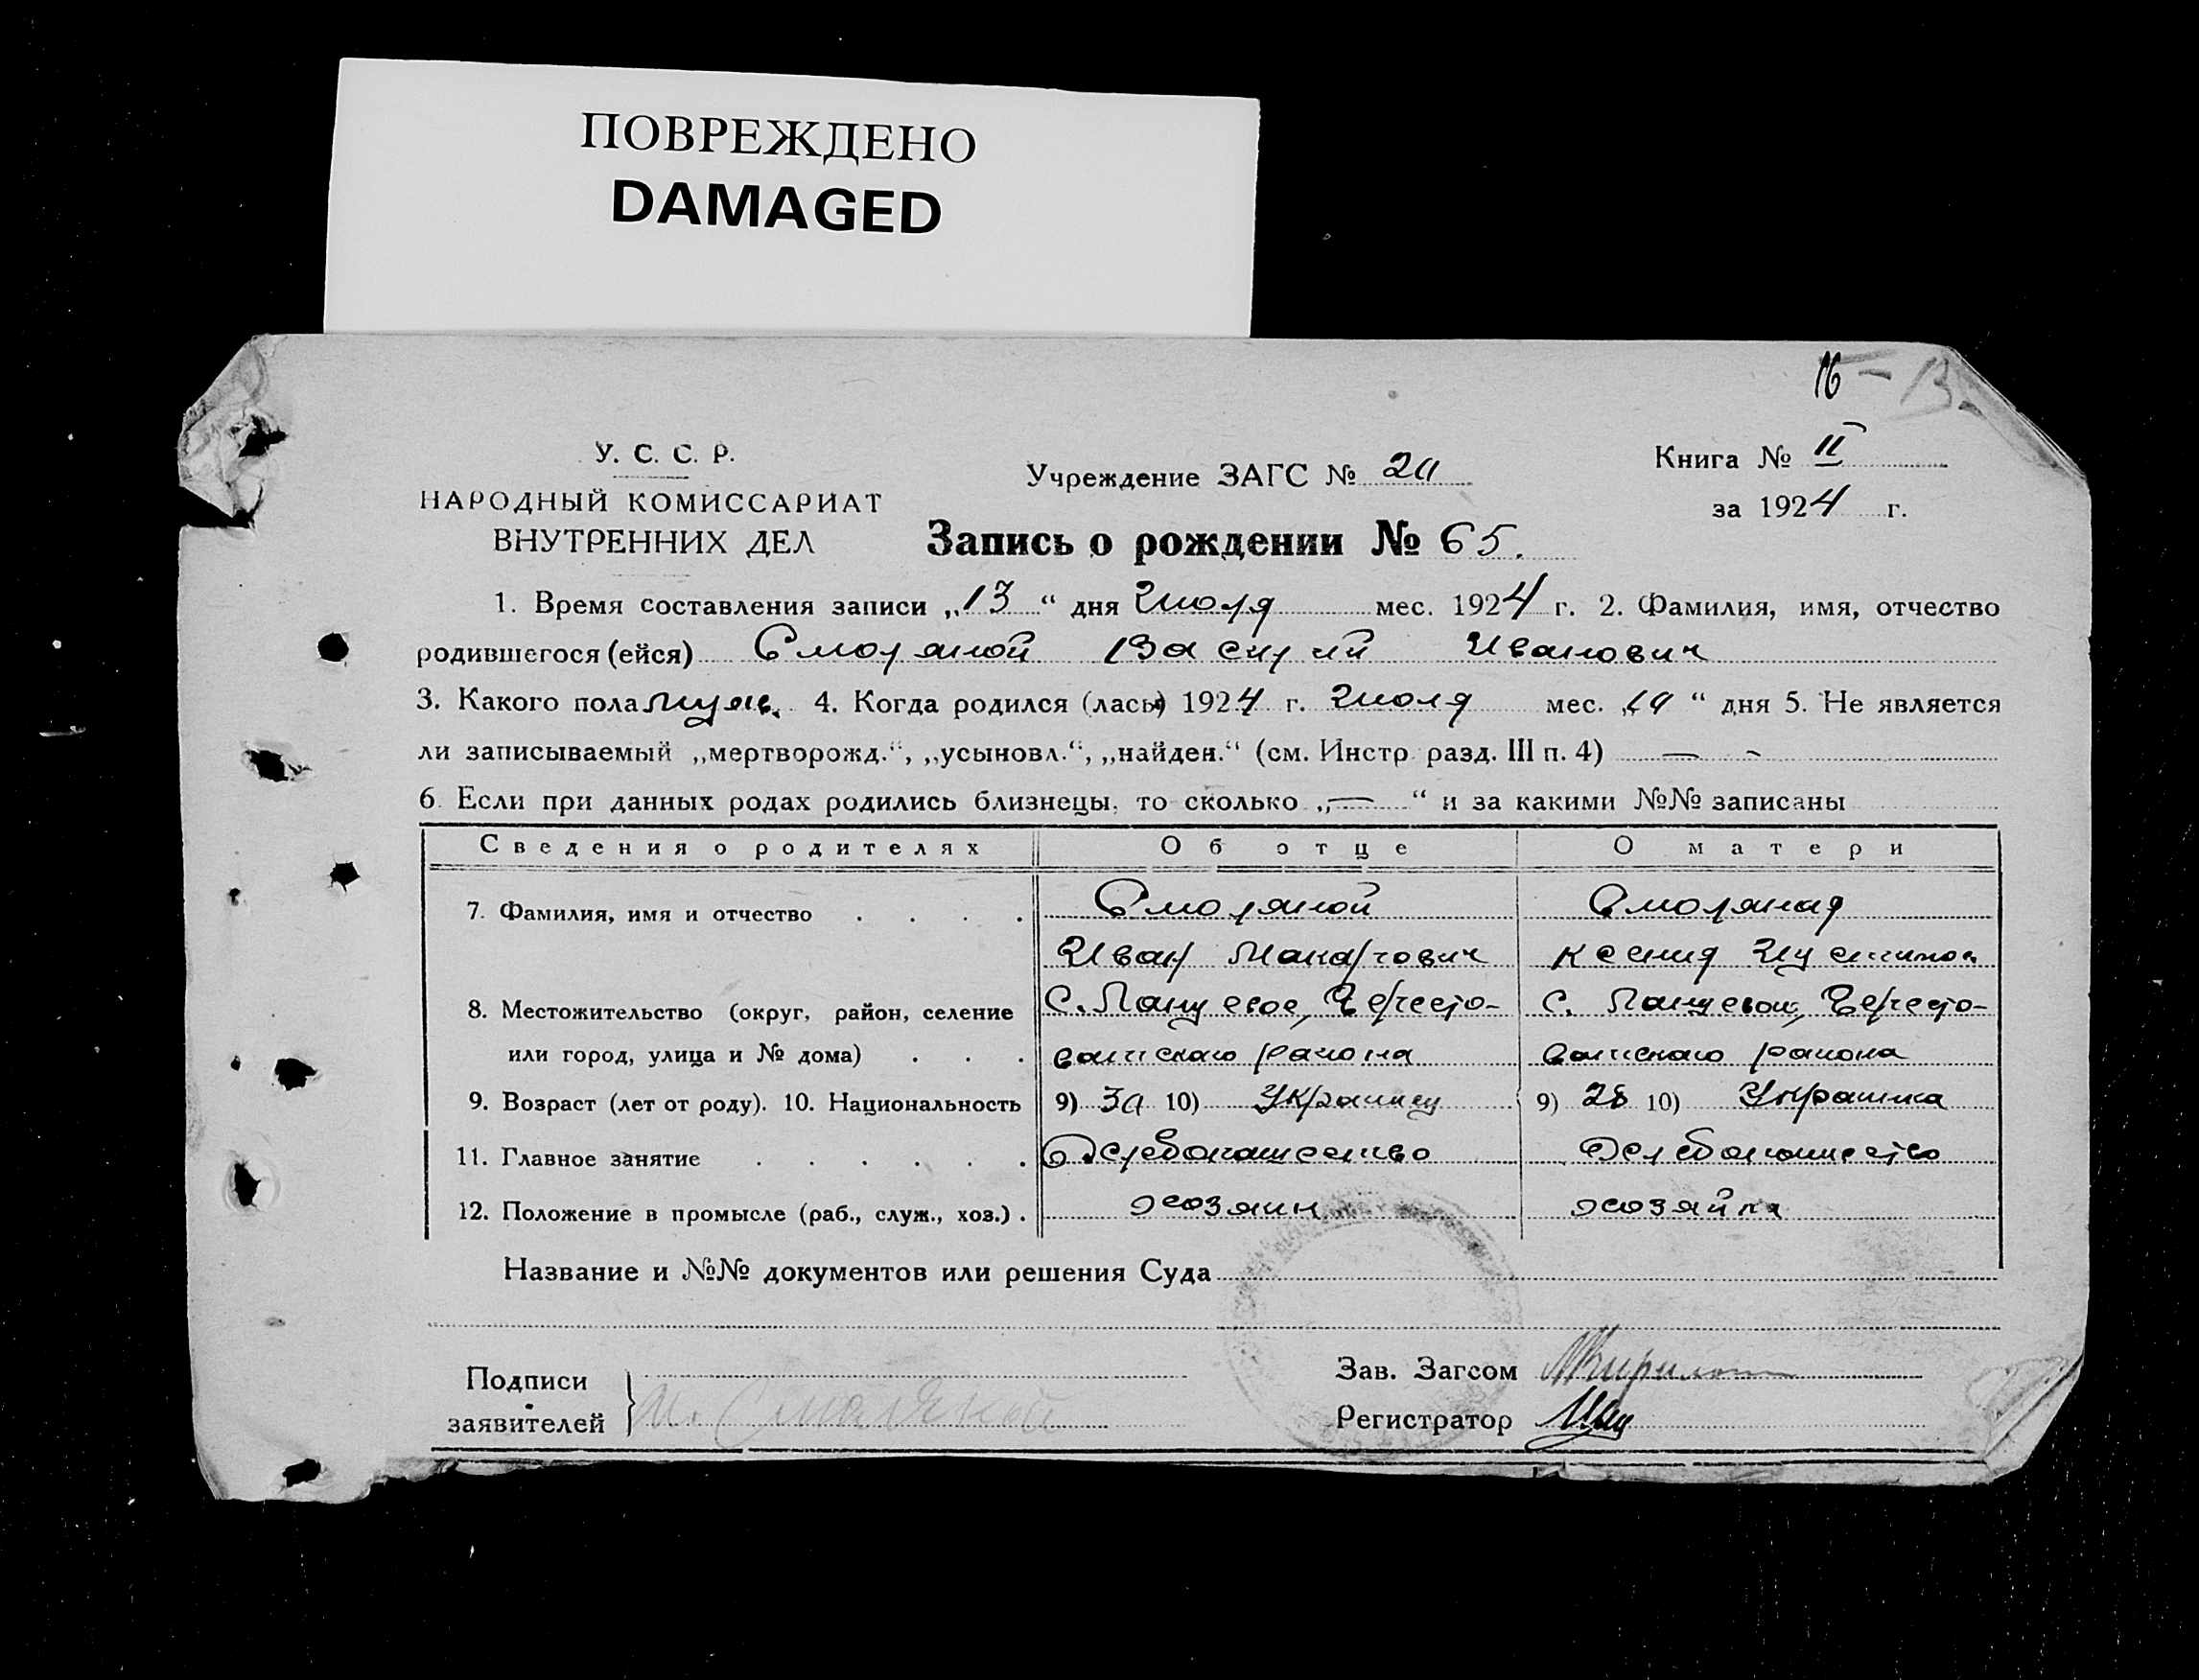 ПОВРЕЖДЕНО
DAMAGED
16 – 13
У. С. С. Р.
НАРОДНЫЙ КОМИССАРИАТ
ВНУТРЕННИХ ДЕЛ
Учреждение ЗАГС №
Книга № II
за 1924 г.
Запись о рождении № 65.
1. Время составления записи „13“ дня Июля мес. 1924 г. 2. Фамилия, имя, отчество
родившегося (ейся) Смоляной Василий Иванович
3. Какого пола муж. 4. Когда родился (лась) 1924 г. Июля мес. „ “ дня 5. Не является
ли записываемый „мертворожд.“, „усыновл.“, „найден.“ (см. Инстр. разд. III п. 4) — -
6. Если при данных родах родились близнецы, то сколько „—“ и за какими №№ записаны
Сведения о родителях Об отце О матери
7. Фамилия, имя и отчество . . . . Смоляной Смоляная
Иван Макарович Ксения
8. Местожительство (округ, район, селение С. Берёсто- С. Берёсто-
или город, улица и № дома) . . . района района
9. Возраст (лет от роду). 10. Национальность 9) 10) Украинец 9) 28 10) Украинка
11. Главное занятие . . . . . . Хлебопашество Хлебопашество
12. Положение в промысле (раб., служ., хоз.) . хозяин хозяйка
Название и №№ документов или решения Суда
Подписи
заявителей
И. Смоляной
Зав. Загсом
Регистратор